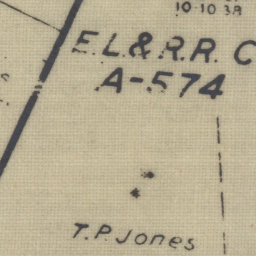 10-10 38
E.L.&R.R. C
A-574
T.P. Jones